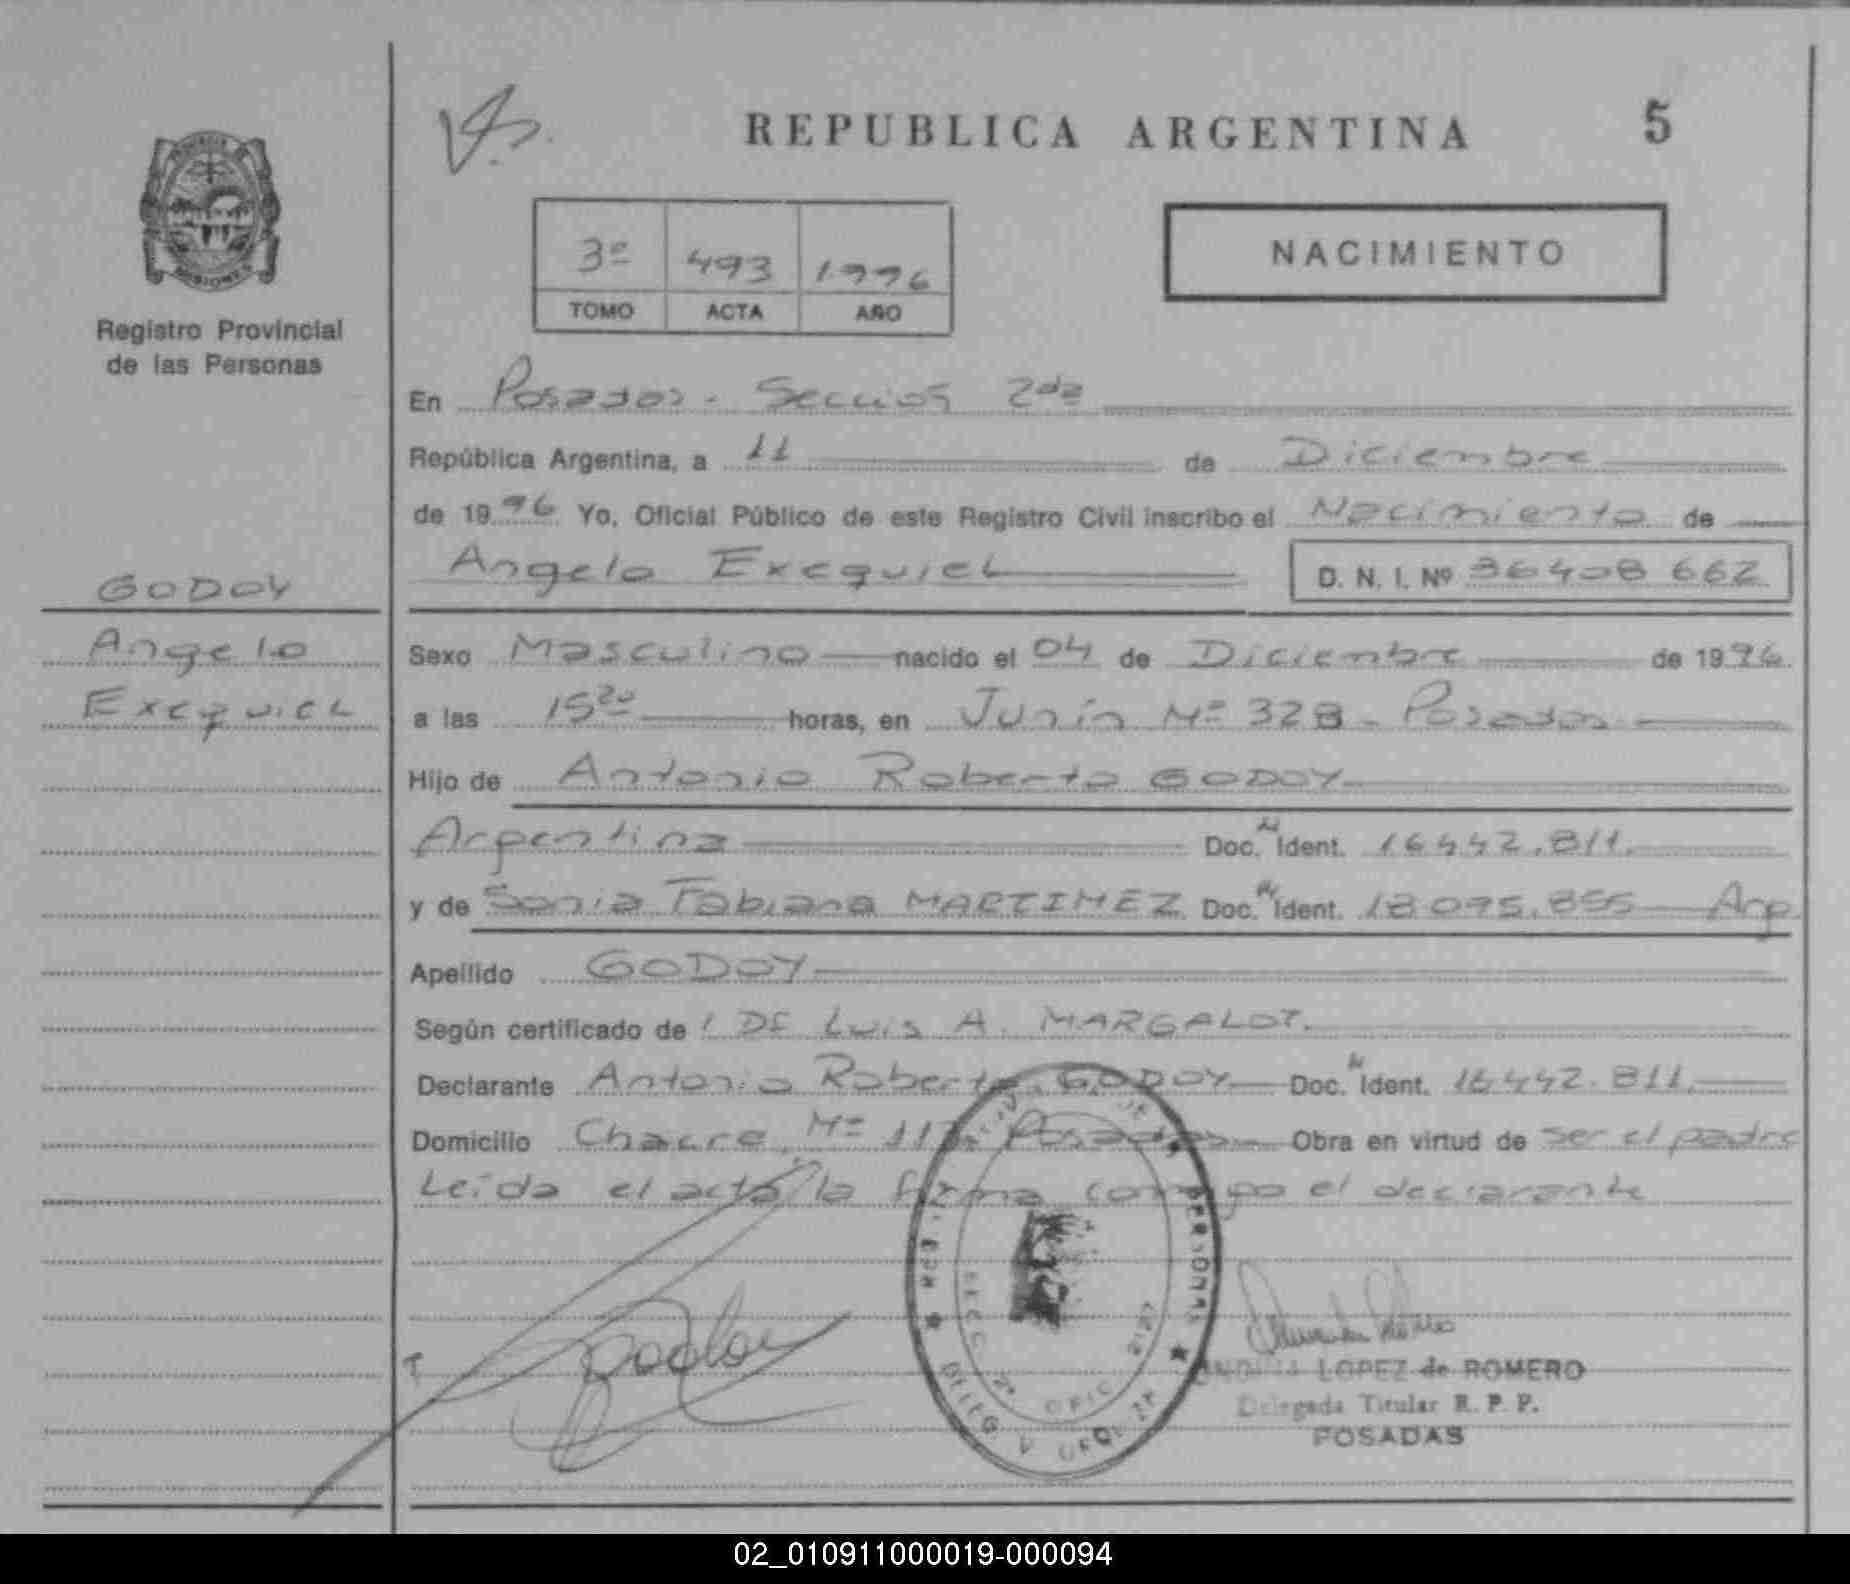 REPUBLICA ARGENTINA
5
MISIONES
Registro Provincial
de las Personas
3º 493 1996
TOMO ACTA AÑO
NACIMIENTO
En Posadas - Sección 2da
República Argentina, a 11 de Diciembre
de 1996 Yo, Oficial Público de este Registro Civil inscribo el Nacimiento de
Angelo Exequiel D. N. I. Nº 36408 662
GODOY
Angelo
Exequiel
Sexo Masculino nacido el 04 de Diciembre de 1996.
a las 15²⁰ horas, en Junín Nº 328 - Posadas
Hijo de Antonio Roberto GODOY
Argentina Doc. N Ident. 16442.811.
y de Sonia Fabiana MARTINEZ Doc. N Ident. 18.095.855 Arg.
Apellido GODOY
Según certificado de Luis A. MARGALOT.
Declarante Antonio Roberto GODOY Doc. N Ident. 16442.811.
Domicilio Chacra Nº Posadas Obra en virtud de ser el padre
Leída el acta la firma conmigo el declarante
Godoy
LOPEZ de ROMERO
Delegada Titular R. P. P.
POSADAS
02_010911000019-000094